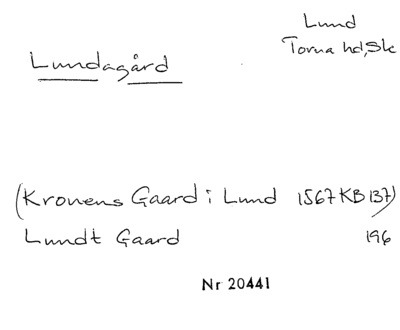 Lund
Torna hd, Sk
Lundagård
(Kronens Gaard i Lund 1567 KB 137)
Lundt Gaard 196
Nr 20441